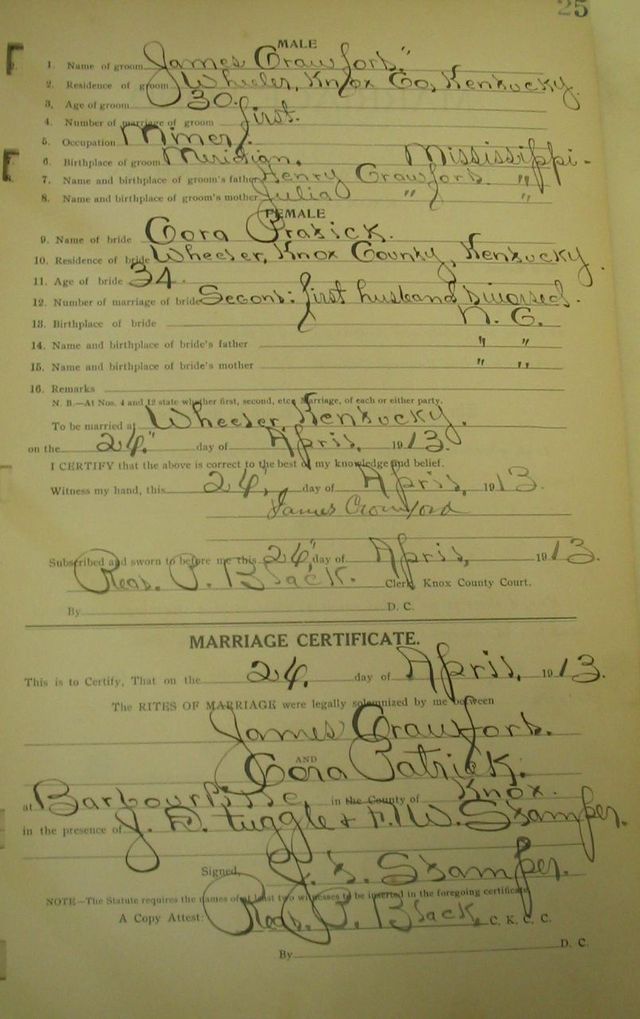 25
MALE
1. Name of groom James Crawford.
2. Residence of groom Wheeler, Knox Co, Kentucky.
3. Age of groom 30.
4. Number of marriage of groom first.
5. Occupation Miner.
6. Birthplace of groom Meridian, Mississippi.
7. Name and birthplace of groom's father Henry Crawford. " "
8. Name and birthplace of groom's mother Julia " "
FEMALE
9. Name of bride Cora Pratick.
10. Residence of bride Wheeler, Knox County, Kentucky.
11. Age of bride 34.
12. Number of marriage of bride Second: first husband divorsed.
13. Birthplace of bride N. C.
14. Name and birthplace of bride's father " "
15. Name and birthplace of bride's mother " "
16. Remarks
N. B.—At Nos. 4 and 12 state whether first, second, etc., Marriage, of each or either party.
To be married at Wheeler, Kentucky.
on the 24" day of April, 1913.
I CERTIFY that the above is correct to the best of my knowledge and belief.
Witness my hand, this 24, day of April, 1913.
James Crowford
Subscribed and sworn to before me this 24" day of April, 1913.
Read P. Black. Clerk Knox County Court.
By D. C.
MARRIAGE CERTIFICATE.
This is to Certify, That on the 24, day of April, 1913.
The RITES OF MARRIAGE were legally solemnized by me between
James Crawford.
AND
Cora Patrick.
at Barbourville, in the County of Knox.
in the presence of J. D. Tuggle & F. W. Stamper.
Signed, J. S. Stamper.
NOTE—The Statute requires the names of at least two witnesses to be inserted in the foregoing certificate
A Copy Attest: Read P. Black, C. K. C. C.
By D. C.